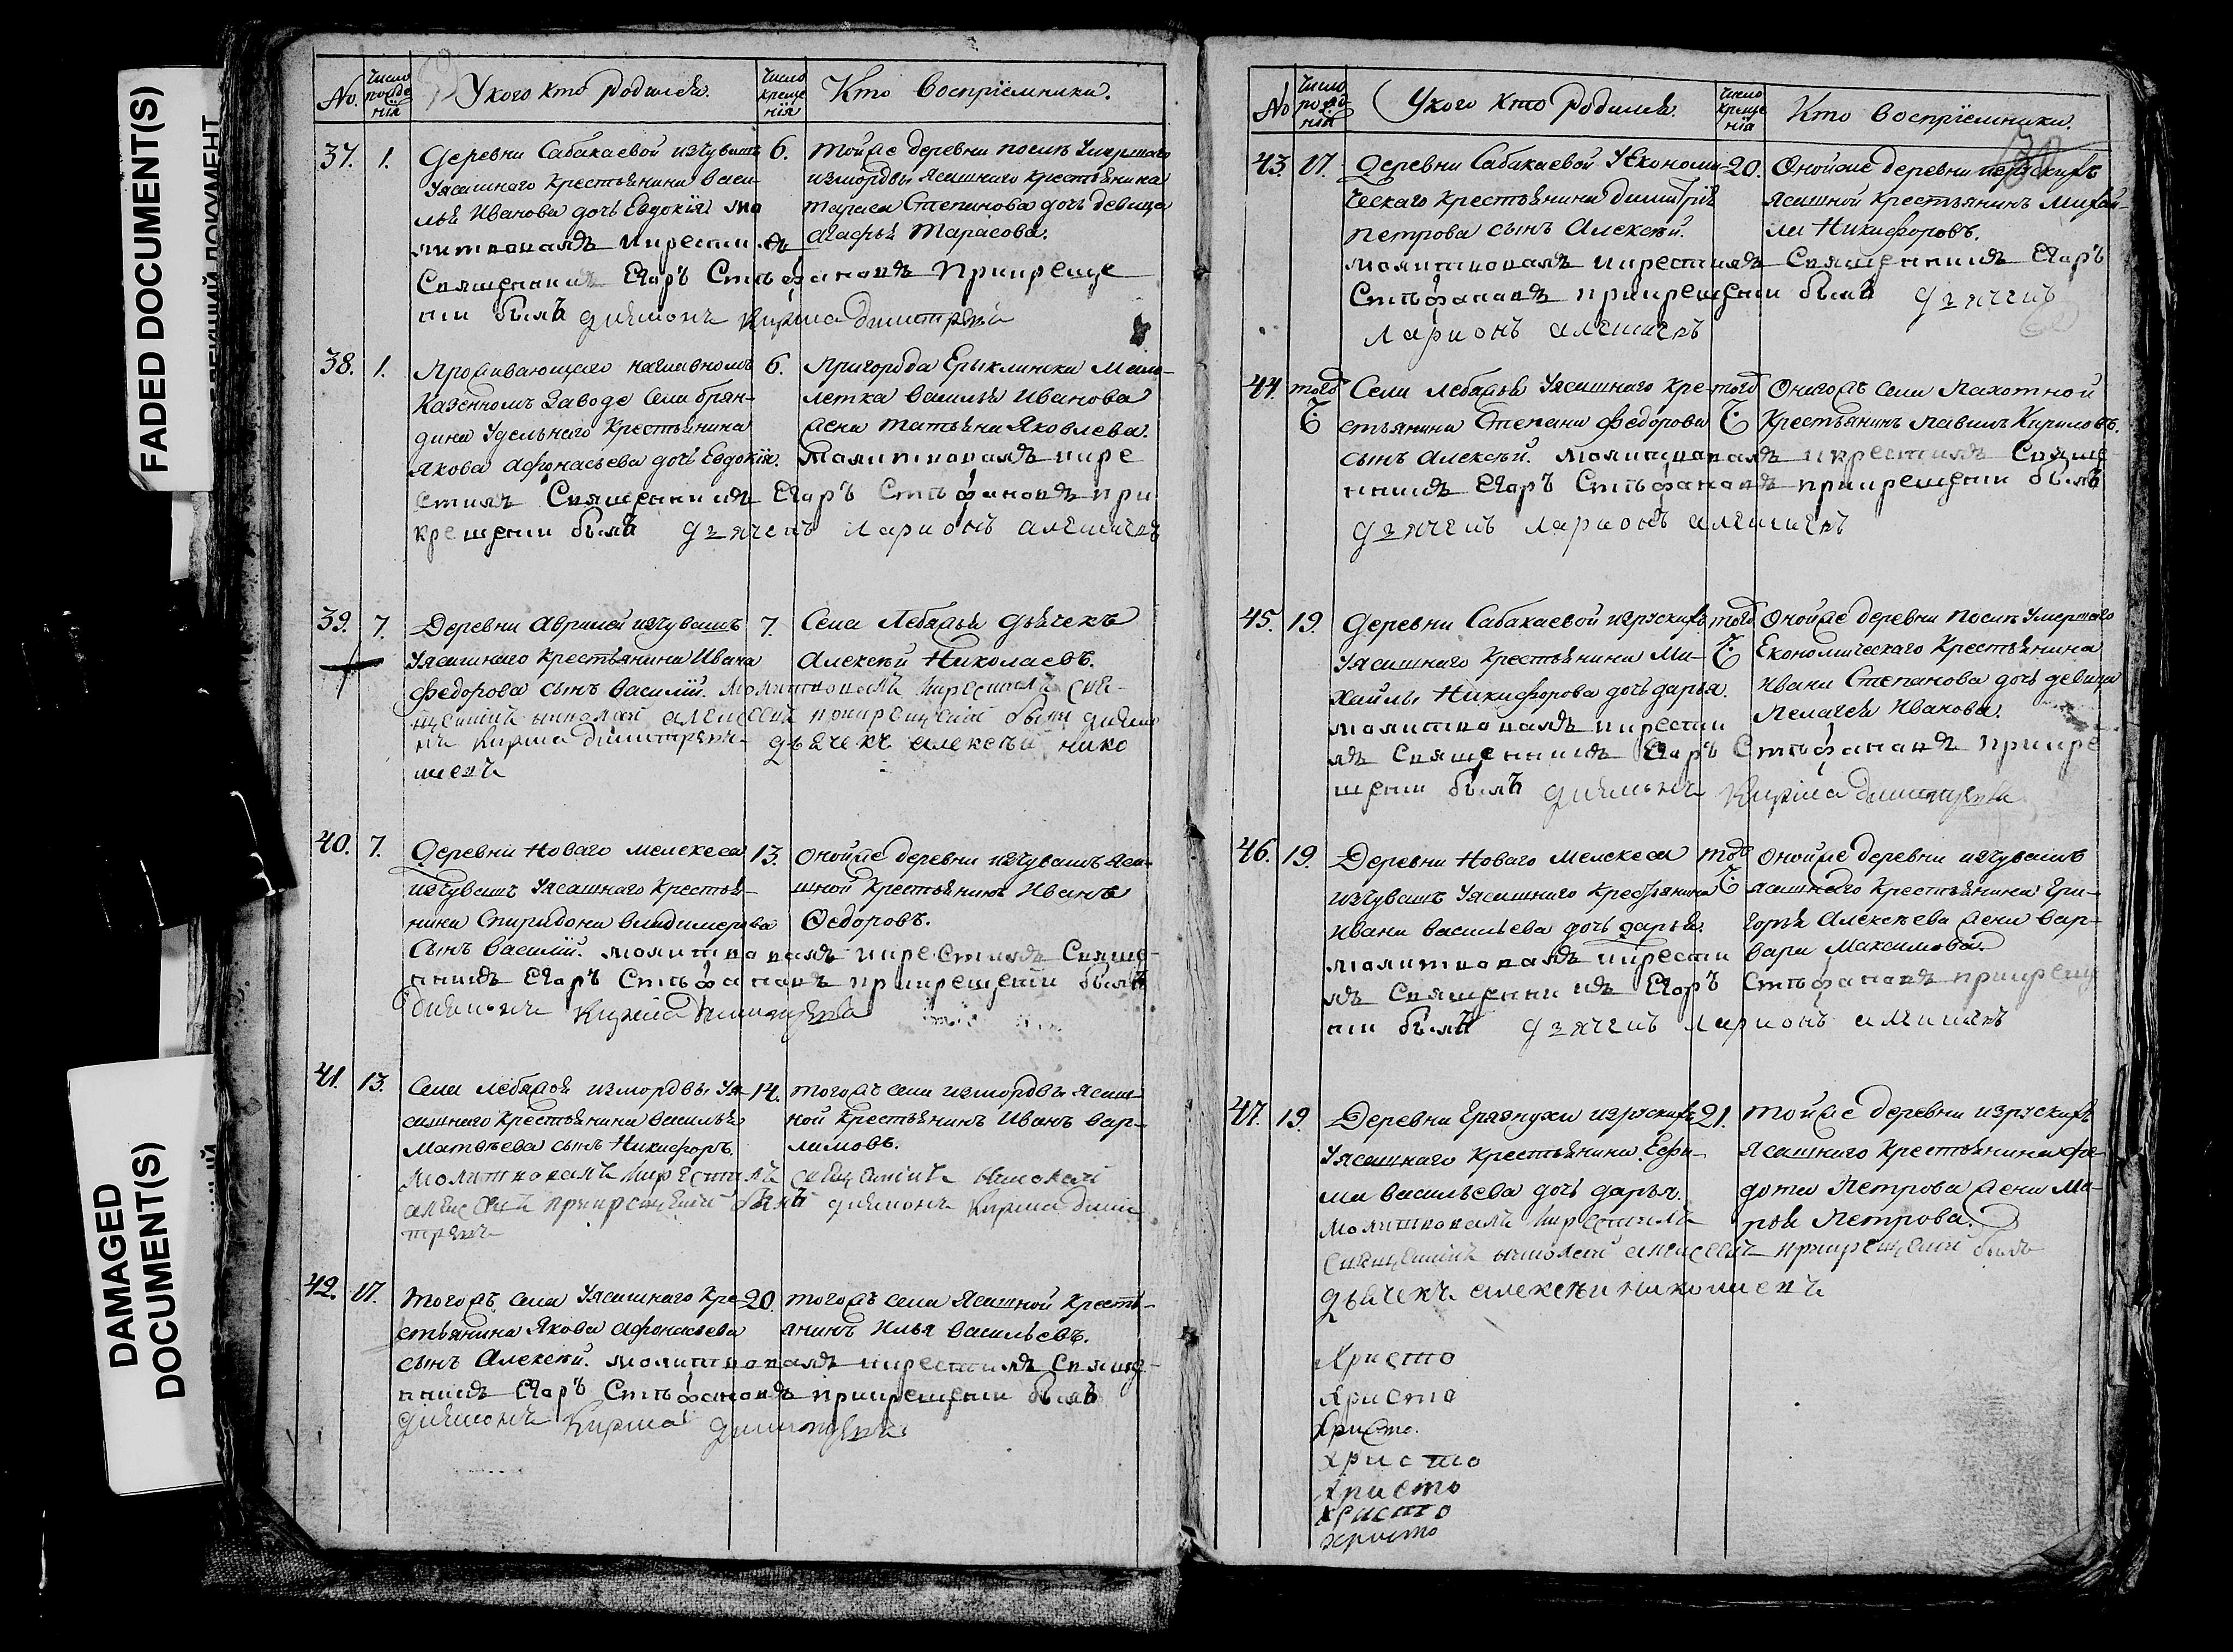 FADED DOCUMENT(S)
DAMAGED
DOCUMENT(S)
No.
Число рожденія
У кого кто родился.
Число крещенія
Кто воспріемники.
37.
1.
Деревни Сабакаевой изъ чувашъ
Уясашнаго крестьянина Васи-
лья Иванова дочь Евдокія мо
литвовалъ и крестилъ
Священникъ Егоръ Стѣфановъ при креще
ніи былъ диаконъ Кирила Димитревъ
6.
той же деревни послѣ умершаго
изъ мордвы ясашнаго крестьянина
Тараса Степанова дочь девица
Агафья Тарасова.
38.
1.
Проживающаго на гливномъ
Казенномъ Заводе села Брян-
дина Удельнаго крестьянина
Якова Афонасьева дочь Евдокія.
6.
Пригорода Ерыклинска Мало-
летка Василья Иванова
жена Татьяна Яковлева.
молитвовалъ и кре
стилъ Священникъ Егоръ Стѣфановъ при
крещении былъ дьячекъ Ларионъ Алешинъ
39.
7.
Деревни Аврилей изъ чувашъ
Уясашнаго крестьянина Ивана
Федорова сынъ Василій. молитвовалъ и крестилъ свя-
щенникъ Николай Алексеев при крещении были диако
нъ Кирила Димитревъ дьячекъ Алексѣй Нико
лаевъ
7.
Села Лебяжья дьячекъ
Алексѣй Николаевъ.
40.
7.
Деревни Новаго Мелекеса
изъ чувашъ Уясашнаго крестья-
нина Спиридона Владимерова
сынъ Василій. молитвовалъ и крестилъ Свяще-
нникъ Егоръ Стѣфановъ при крещении былъ
диаконъ Кирила Димитревъ
13.
оной же деревни изъ чувашъ яса-
шной крестьянинъ Иванъ
Ѳедоровъ.
41.
13.
Села Лебяжья изъ мордвы Уя-
сашнаго крестьянина Василья
Матвѣева сынъ Никифоръ.
молитвовалъ и крестилъ священникъ Николай
Алексеев при крещении былъ диаконъ Кирила Дими
тревъ
14.
того жъ села изъ мордвы ясаш-
ной крестьянинъ Иванъ Вар-
ламовъ.
42.
17.
Того жъ села Уясашнаго кре-
стьянина Якова Афонасьева
сынъ Алексѣй. молитвовалъ и крестилъ Свяще-
нникъ Егоръ Стѣфановъ при крещении былъ
диаконъ Кирила Димитревъ
20
того жъ села ясашной кресть-
янинъ Илья Васильевъ.
No
Число рожденія
У кого кто родился.
Число крещенія
Кто воспріемники.
43.
17.
Деревни Сабакаевой Уекономи-
ческаго крестьянина Димитрія
Петрова сынъ Алексѣй.
молитвовалъ и крестилъ Священникъ Егоръ
Стѣфановъ при крещении былъ дьячекъ
Ларионъ Алешинъ
20.
Оной же деревни изъ рускихъ
ясашной крестьянинъ Михай-
ла Никифоровъ.
44.
того ж
Села Лебяжья Уясашнаго кре-
стьянина Степана Федорова
сынъ Алексѣй. молитвовалъ и крестилъ Свяще-
нникъ Егоръ Стѣфановъ при крещении былъ
дьячекъ Ларионъ Алешинъ
того ж
Онаго жъ села Пахотной
крестьянинъ Павелъ Кириловъ.
45.
19.
Деревни Сабакаевой изъ рускихъ
Уясашнаго крестьянина Ми-
хайлы Никифорова дочь Дарья.
молитвовалъ и крести
лъ Священникъ Егоръ Стѣфановъ при кре
щении былъ диаконъ Кирила Димитревъ
того ж
Оной же деревни послѣ умершаго
Економическаго крестьянина
Ивана Степанова дочь девица
Пелагея Иванова.
46.
19.
Деревни Новаго Мелекеса
изъ чувашъ Уясашнаго крестьянина
Ивана Васильева дочь Дарья.
молитвовалъ и крести
лъ Священникъ Егоръ Стѣфановъ при крещ
ніи былъ дьячекъ Ларионъ Алешинъ
того ж
оной же деревни изъ чувашъ
ясашнаго крестьянина Гри-
горья Алексѣева жена Вар-
вара Максимова.
47.
19.
Деревни Ерзянухи изъ рускихъ
Уясашнаго крестьянина Ефи-
ма Васильева дочь Дарья.
молитвовалъ и крестилъ
священникъ Николай Алексеевъ при крещении былъ
дьячекъ Алексѣй Николаевъ
21.
той же деревни изъ рускихъ
ясашнаго крестьянина Фе-
дота Петрова жена Ма-
рья Петрова.
Христо
Христо
Христо.
Христо
Христо
Христо
Христо